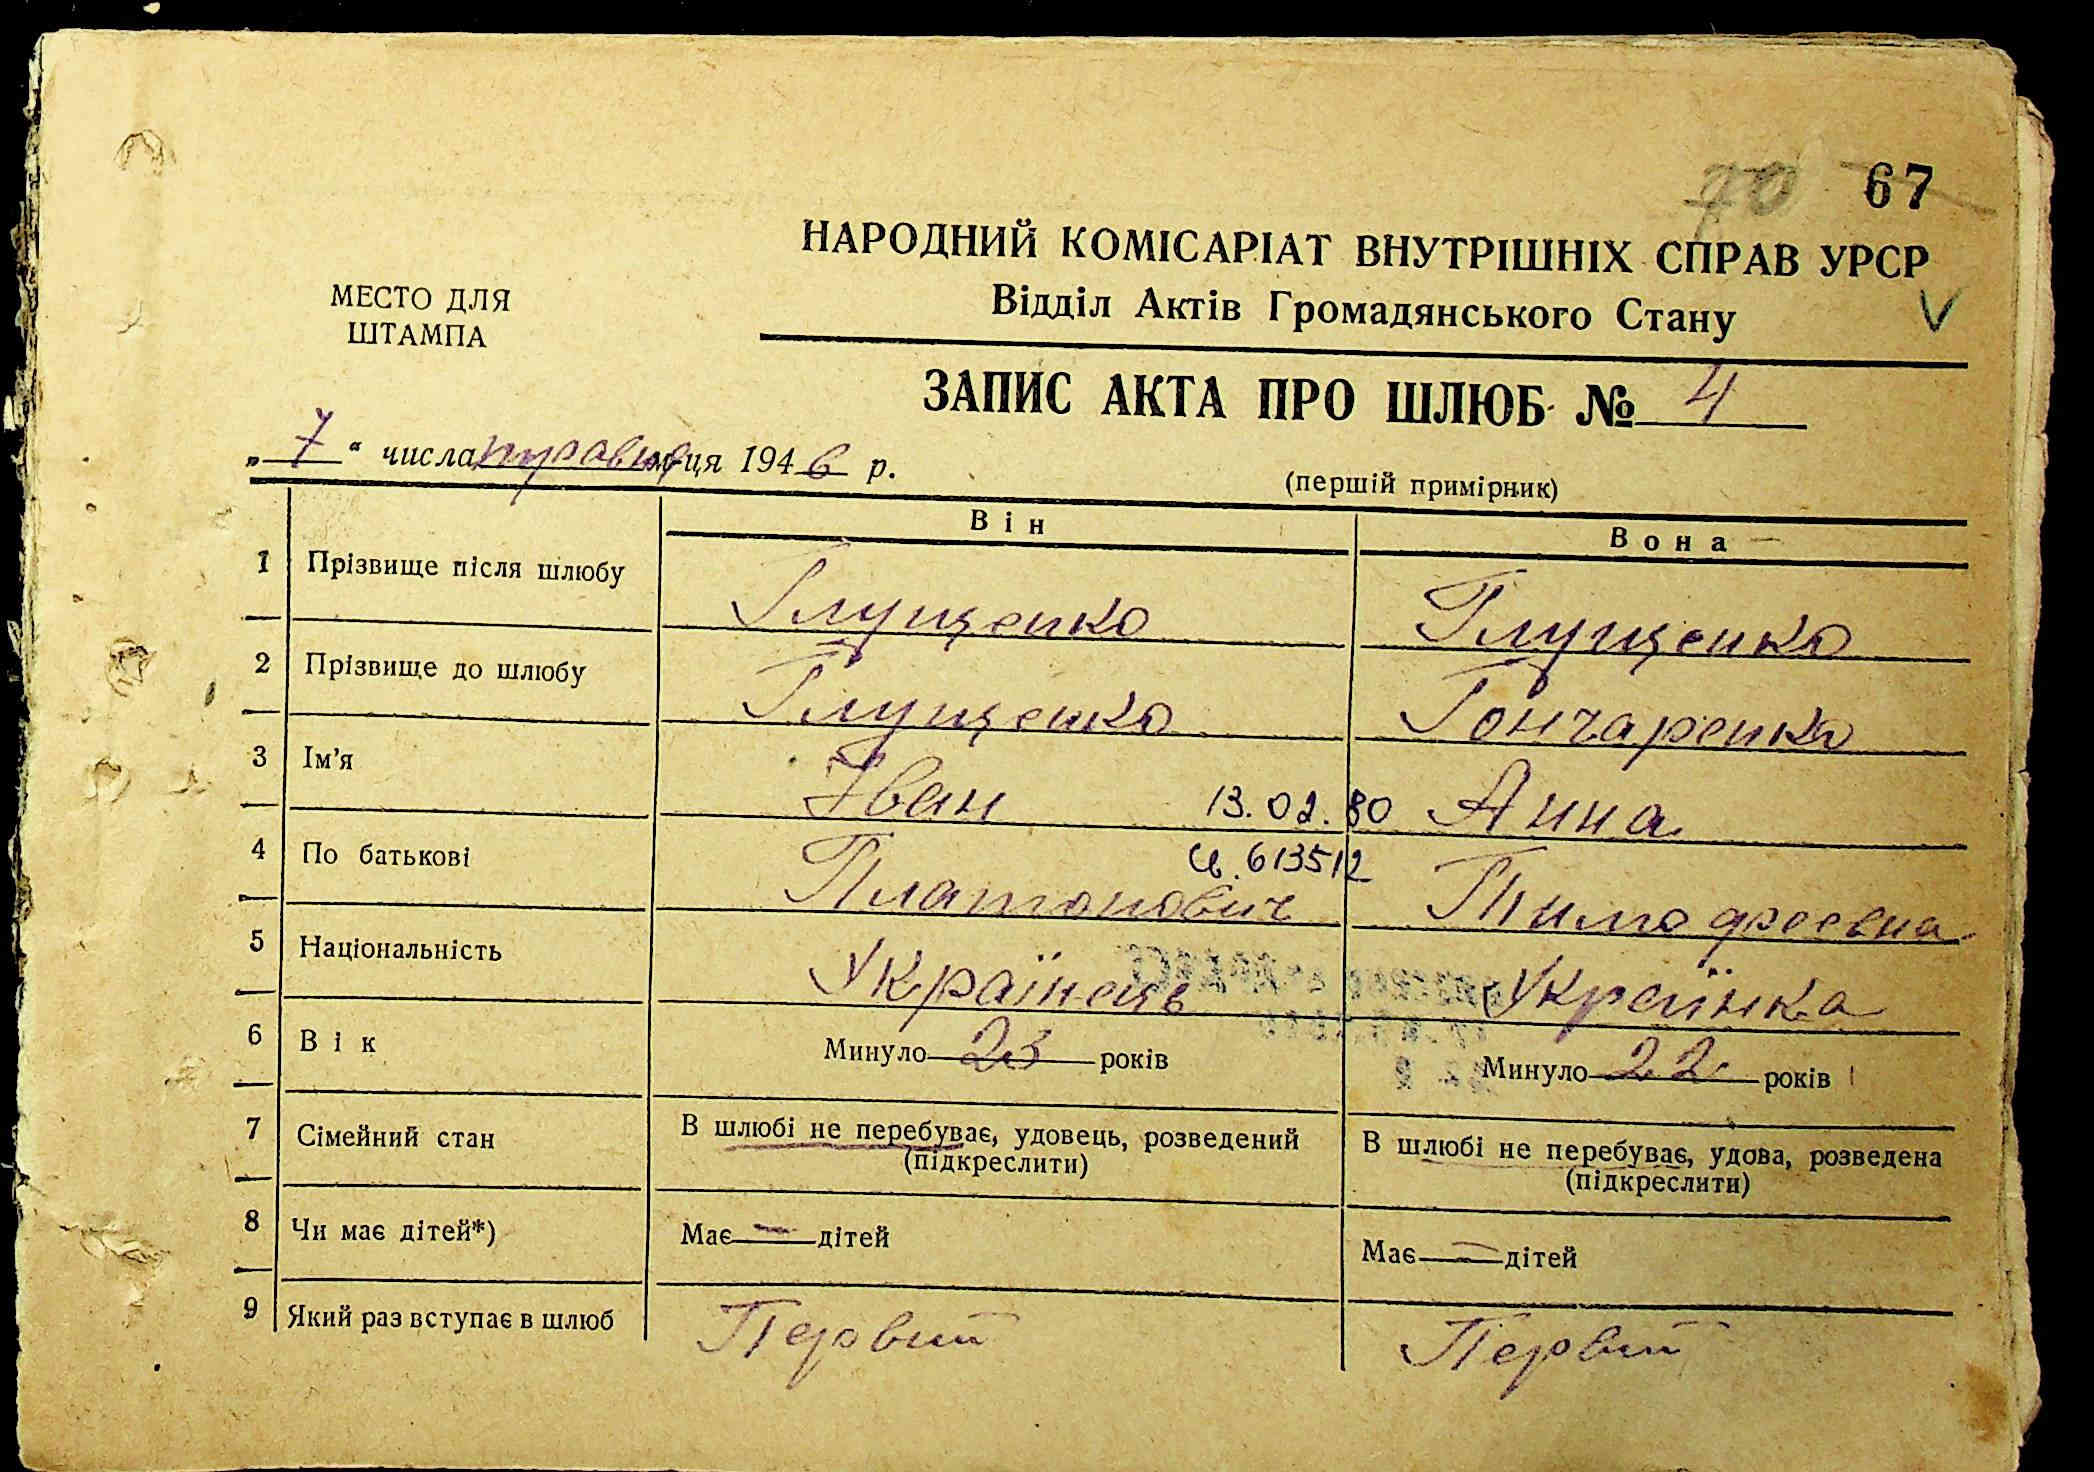 70 67
НАРОДНИЙ КОМІСАРІАТ ВНУТРІШНІХ СПРАВ УРСР
Відділ Актів Громадянського Стану
V
МЕСТО ДЛЯ
ШТАМПА
ЗАПИС АКТА ПРО ШЛЮБ № 4
„ 7 “ числа травня м-ця 1946 р.
(першій примірник)
Він Вона
1 Прізвище після шлюбу Глущенко Глущенко
2 Прізвище до шлюбу Глущенко Гончаренко
3 Ім'я Іван 13.02.80 Анна
4 По батькові Платонович 613512 Тимофеевна
5 Національність Українець Українка
6 Вік Минуло 23 років Минуло 22 років
7 Сімейний стан В шлюбі не перебуває, удовець, розведений В шлюбі не перебуває, удова, розведена
(підкреслити) (підкреслити)
8 Чи має дітей*) Має — дітей Має — дітей
9 Який раз вступає в шлюб Первий Первий